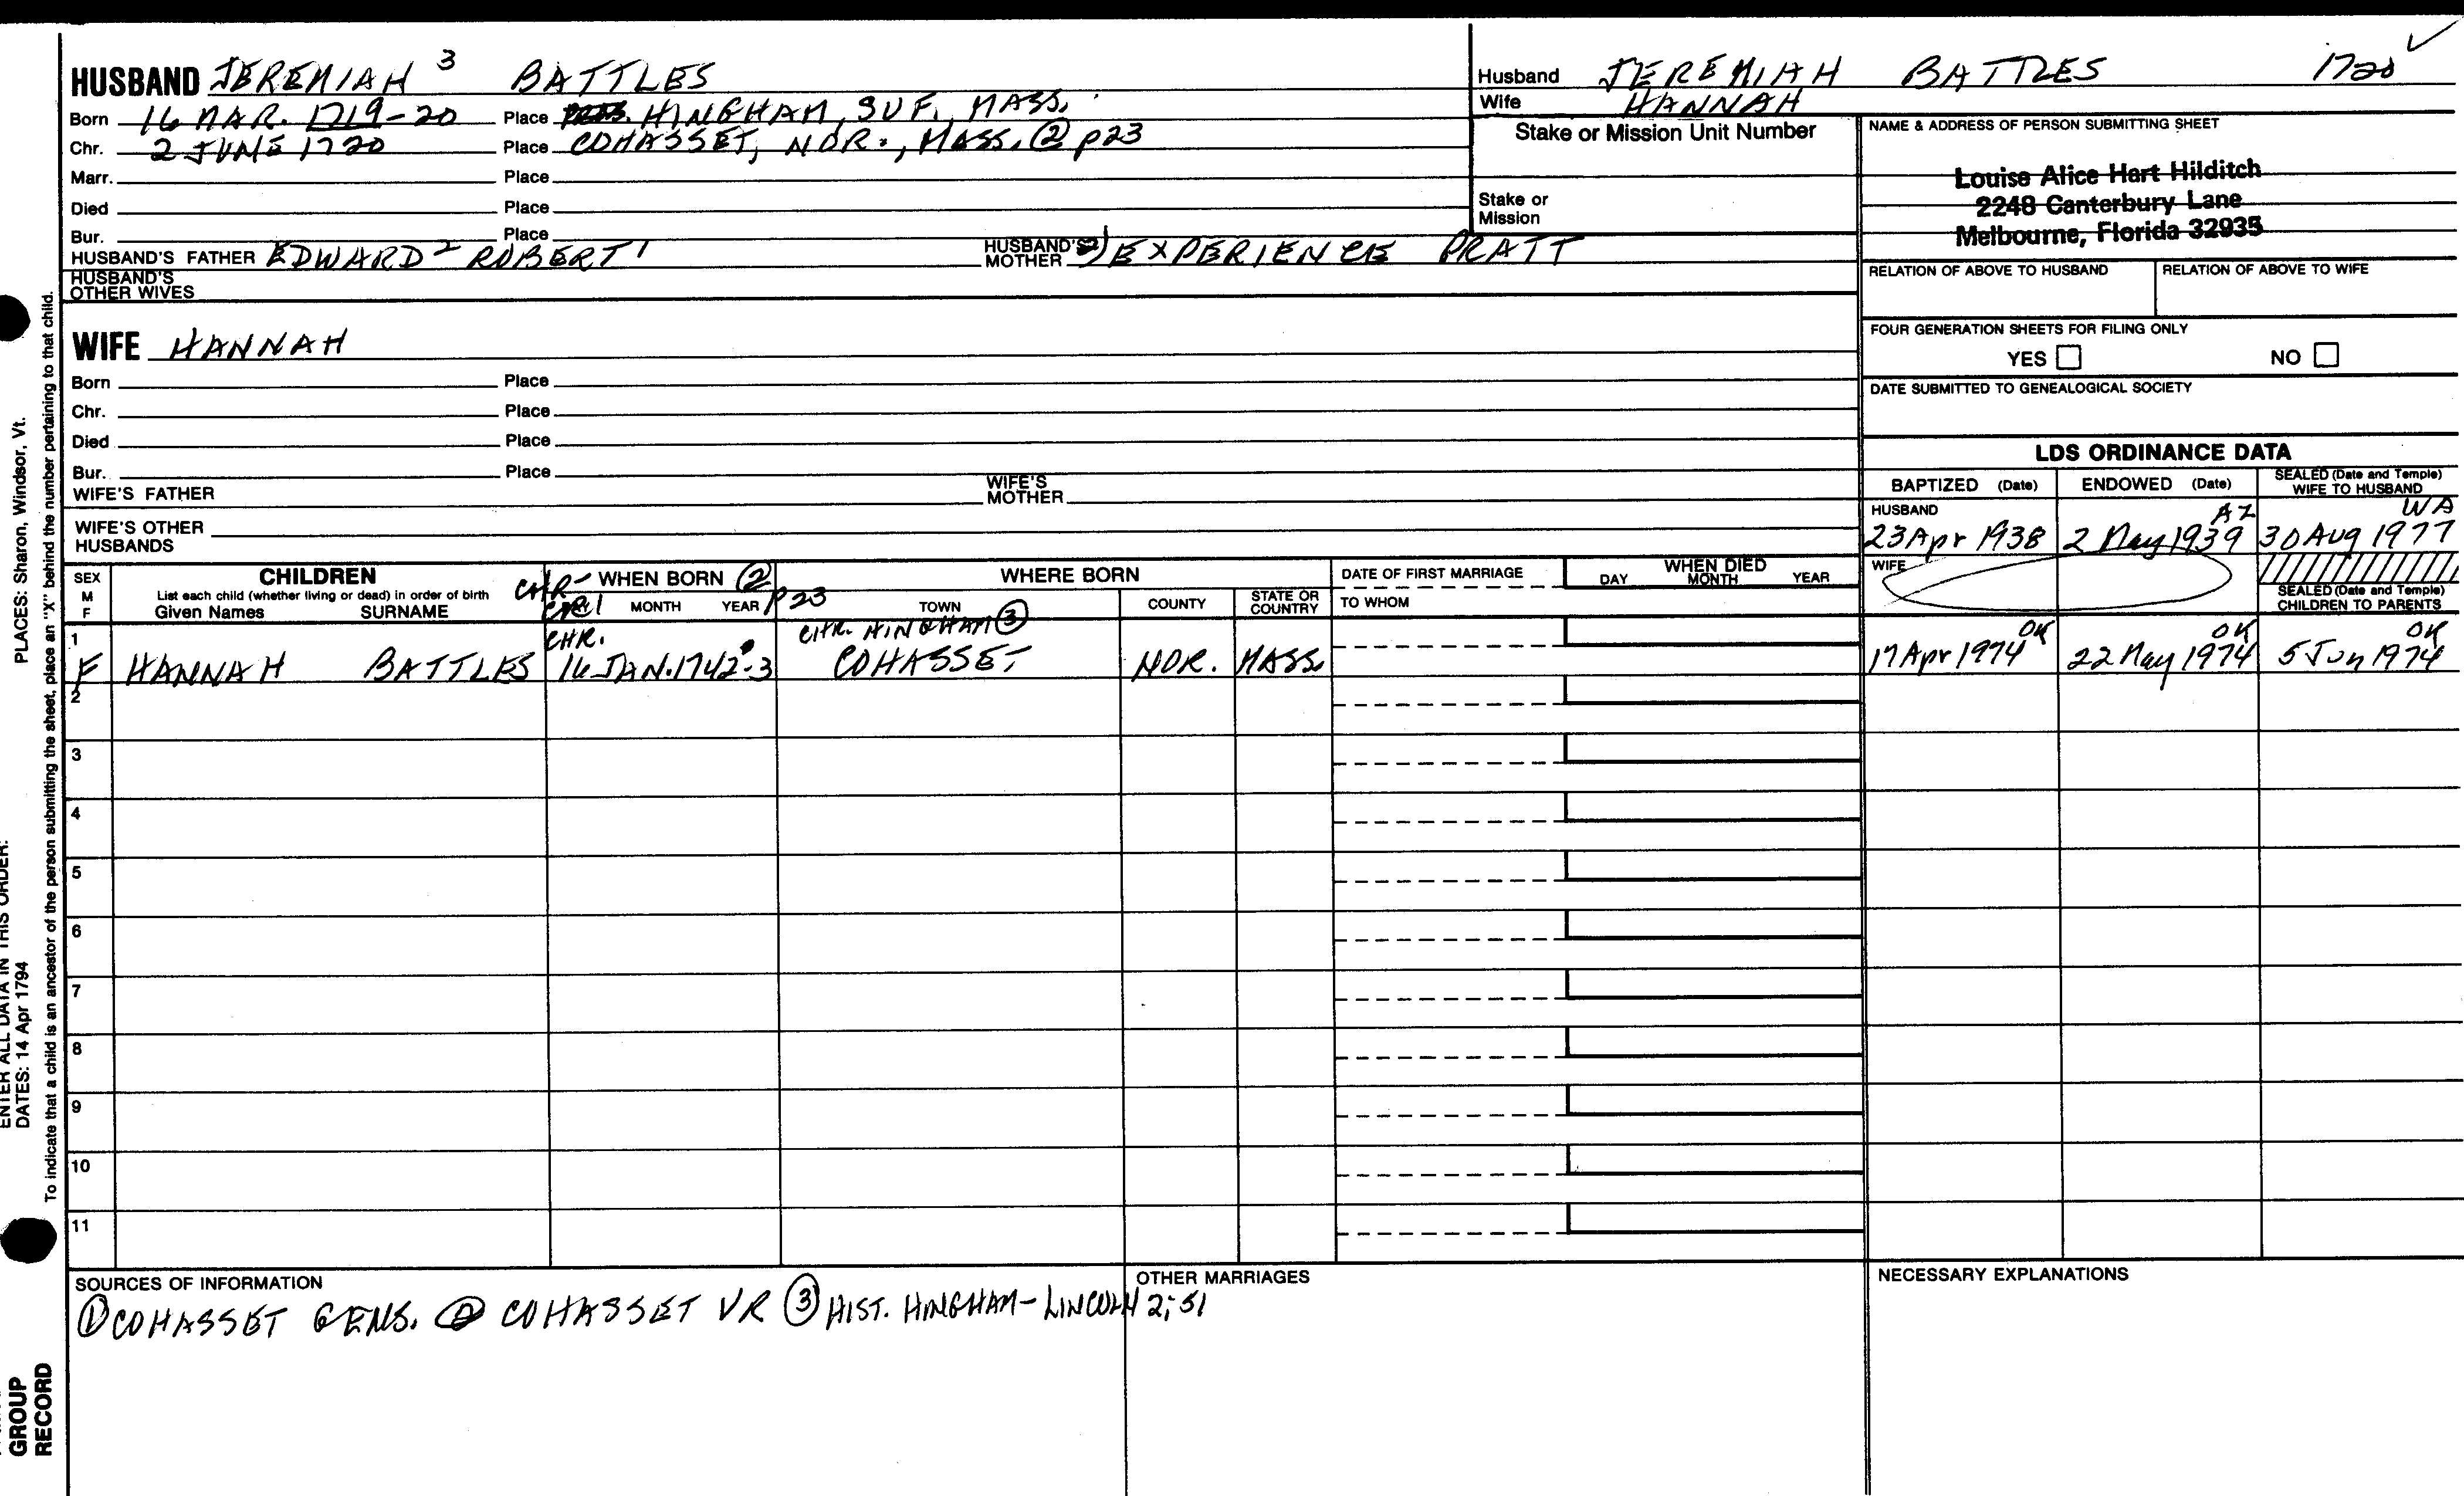 HUSBAND JEREMIAH 3 BATTLES
Born 16 MAR. 1719-20 Place HINGHAM, SUF., MASS.
Chr. 2 JUNE 1720 Place COHASSET, NOR., MASS. ② p23
Marr. Place
Died Place
Bur. Place
HUSBAND'S FATHER EDWARD 2 ROBERT 1 HUSBAND'S MOTHER EXPERIENCE PRATT
HUSBAND'S OTHER WIVES
WIFE HANNAH
Born Place
Chr. Place
Died Place
Bur. Place
WIFE'S FATHER WIFE'S MOTHER
WIFE'S OTHER HUSBANDS
Husband JEREMIAH BATTLES 1720
Wife HANNAH
Stake or Mission Unit Number
Stake or Mission
NAME & ADDRESS OF PERSON SUBMITTING SHEET
Louise Alice Hart Hilditch
2248 Canterbury Lane
Melbourne, Florida 32935
RELATION OF ABOVE TO HUSBAND RELATION OF ABOVE TO WIFE
FOUR GENERATION SHEETS FOR FILING ONLY
YES NO
DATE SUBMITTED TO GENEALOGICAL SOCIETY
LDS ORDINANCE DATA
BAPTIZED (Date) ENDOWED (Date) SEALED (Date and Temple) WIFE TO HUSBAND
HUSBAND AZ WA
23 Apr 1938 2 May 1939 30 Aug 1977
WIFE
SEALED (Date and Temple) CHILDREN TO PARENTS
SEX M F
CHILDREN
List each child (whether living or dead) in order of birth
Given Names SURNAME
CHR- WHEN BORN ② p23
MONTH YEAR
WHERE BORN
TOWN COUNTY STATE OR COUNTRY
DATE OF FIRST MARRIAGE
TO WHOM
WHEN DIED
DAY MONTH YEAR
1 CHR. CHR. HINGHAM ③ OK OK OK
F HANNAH BATTLES 16 JAN. 1742-3 COHASSET NOR. MASS. 17 Apr 1974 22 May 1974 5 Jun 1974
2
3
4
5
6
7
8
9
10
11
SOURCES OF INFORMATION
① COHASSET GENS. ② COHASSET VR ③ HIST. HINGHAM-LINCOLN 2; 51
OTHER MARRIAGES
NECESSARY EXPLANATIONS
ENTER ALL DATA IN THIS ORDER:
DATES: 14 Apr 1794
PLACES: Sharon, Windsor, Vt.
To indicate that a child is an ancestor of the person submitting the sheet, place an "X" behind the number pertaining to that child.
GROUP
RECORD